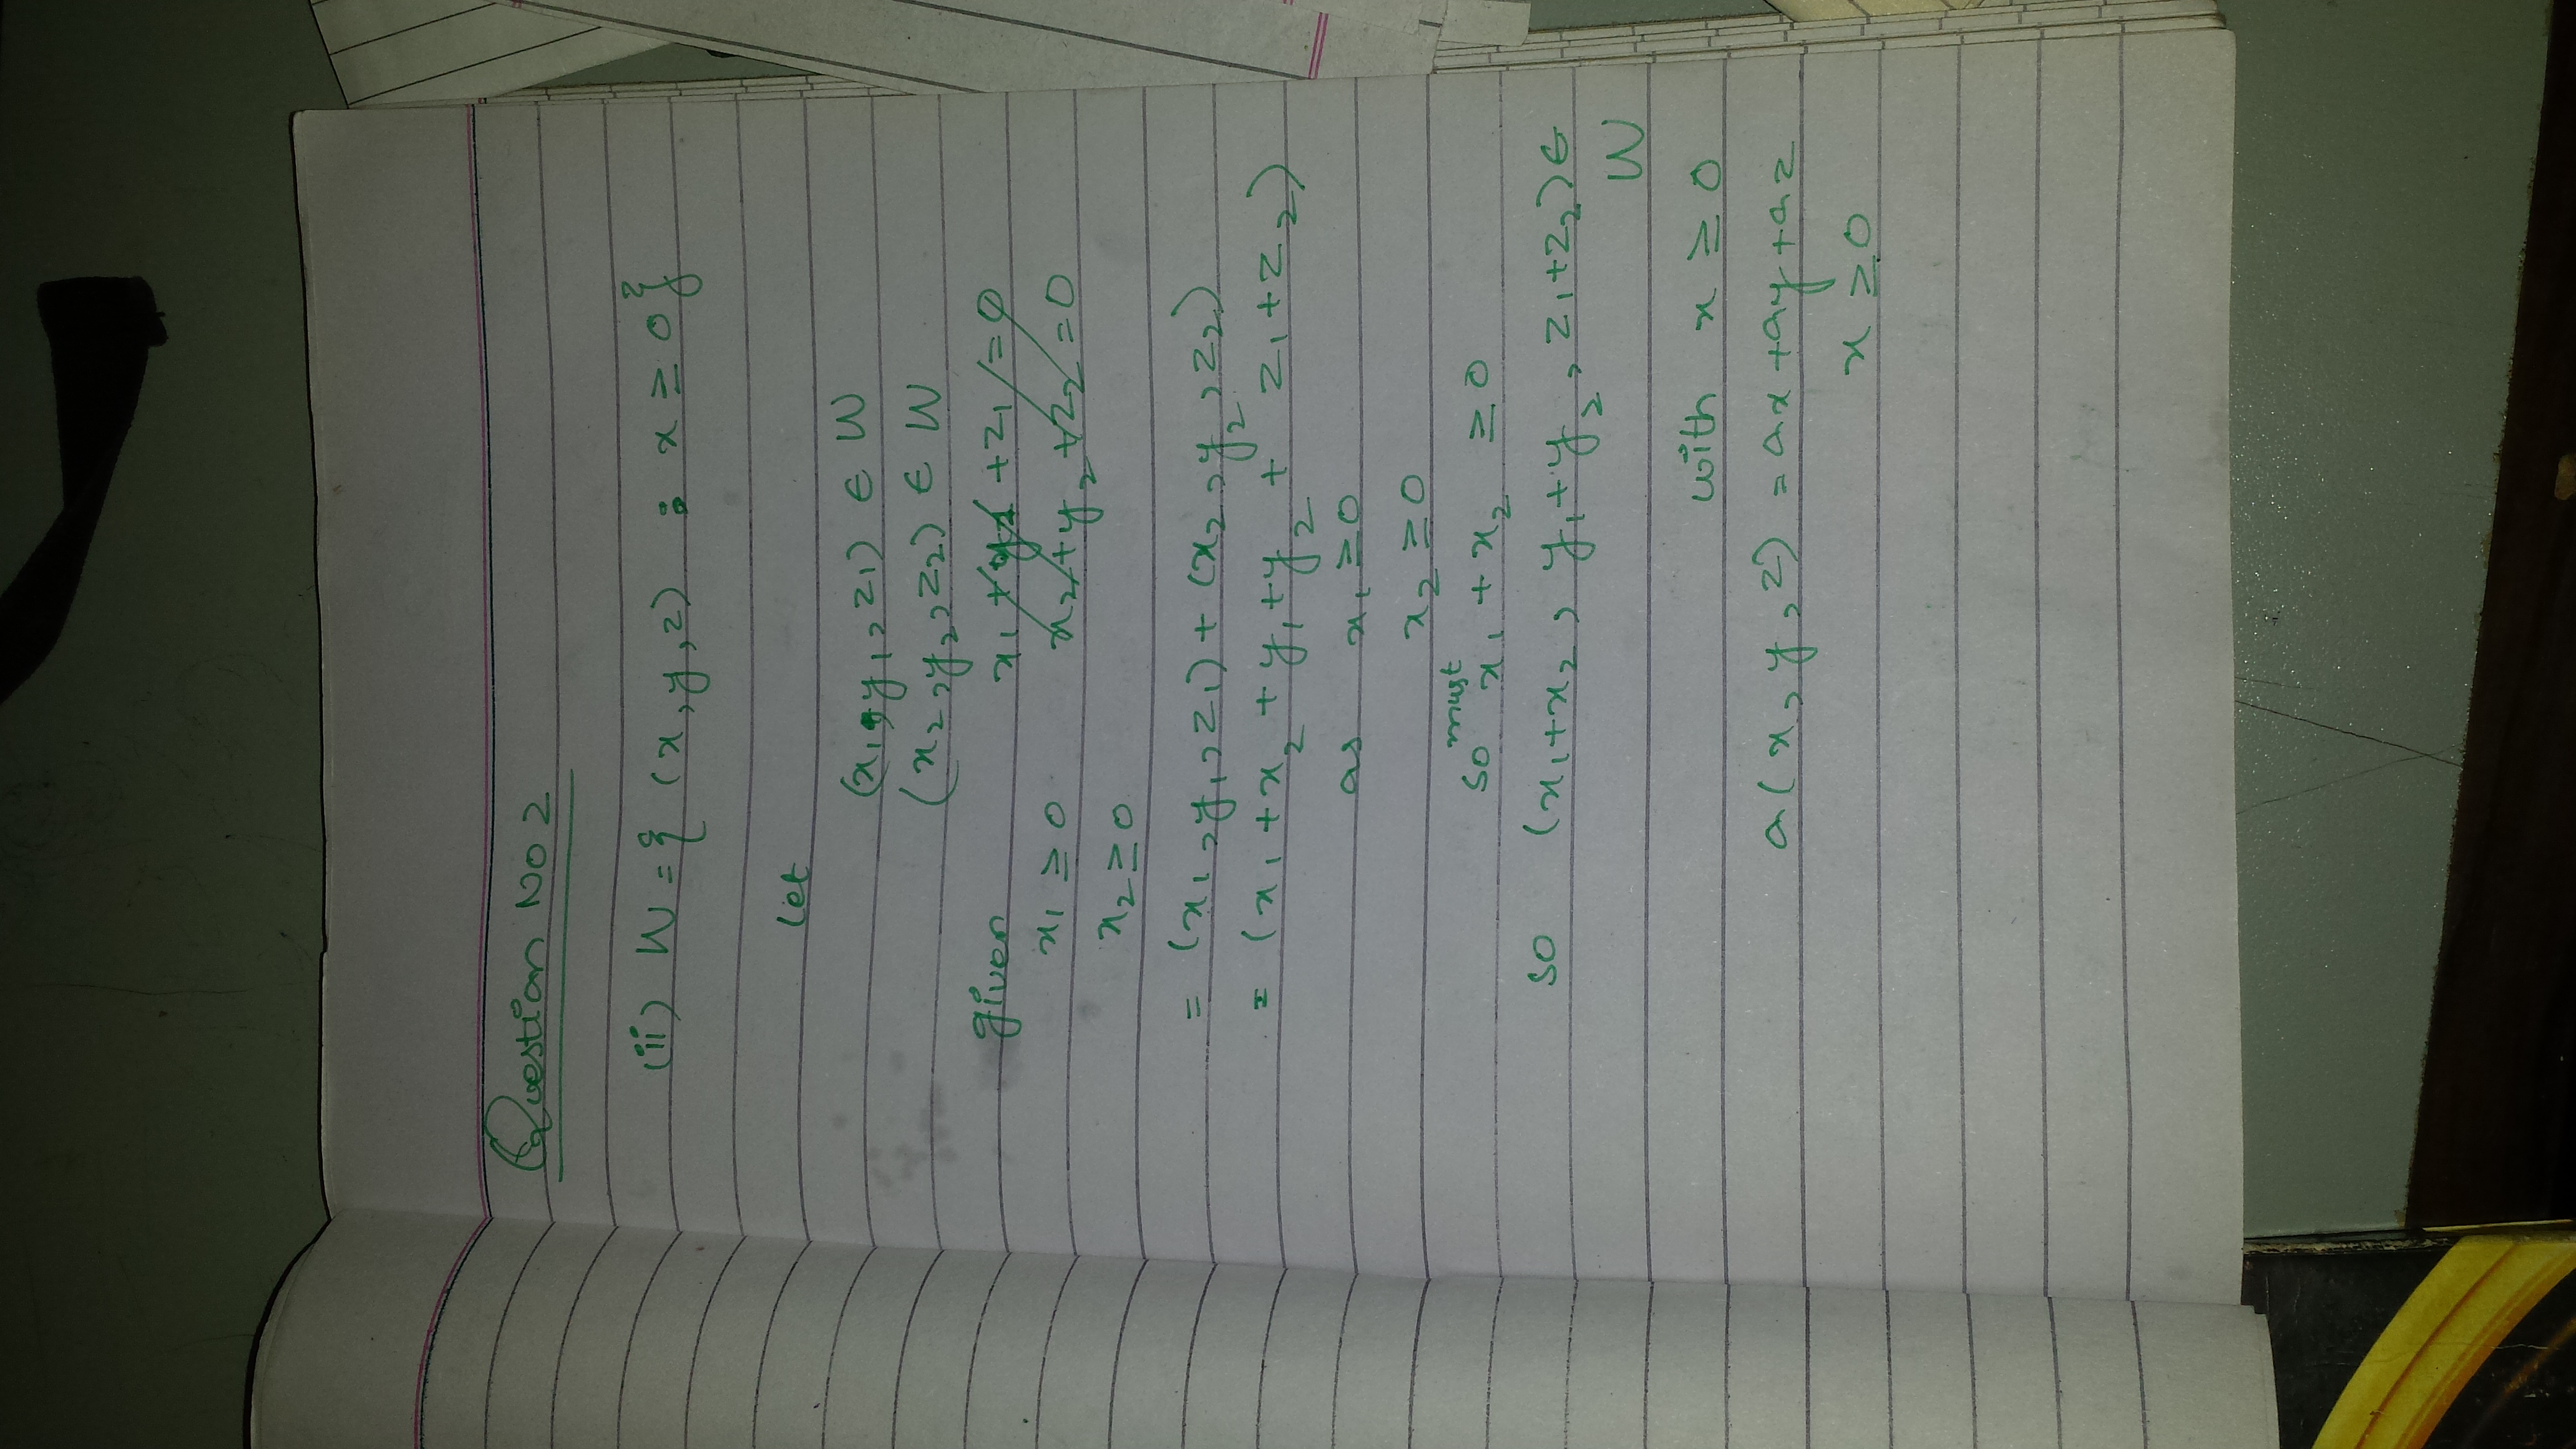 Question No 2
(ii) W = { (x, y, z) : x ≥ 0 }
let
(x₁, y₁, z₁) ∈ W
(x₂, y₂, z₂) ∈ W
given x₁ + y₁ + z₁ = 0
x₁ ≥ 0 x₂ + y₂ + z₂ = 0
x₂ ≥ 0
= (x₁, y₁, z₁) + (x₂, y₂, z₂)
= (x₁ + x₂ + y₁ + y₂ + z₁ + z₂)
as x₁ ≥ 0
x₂ ≥ 0
so must x₁ + x₂ ≥ 0
so (x₁+x₂, y₁+y₂, z₁+z₂) ∈
W
with x ≥ 0
a(x, y, z) = ax + ay + az
x ≥ 0